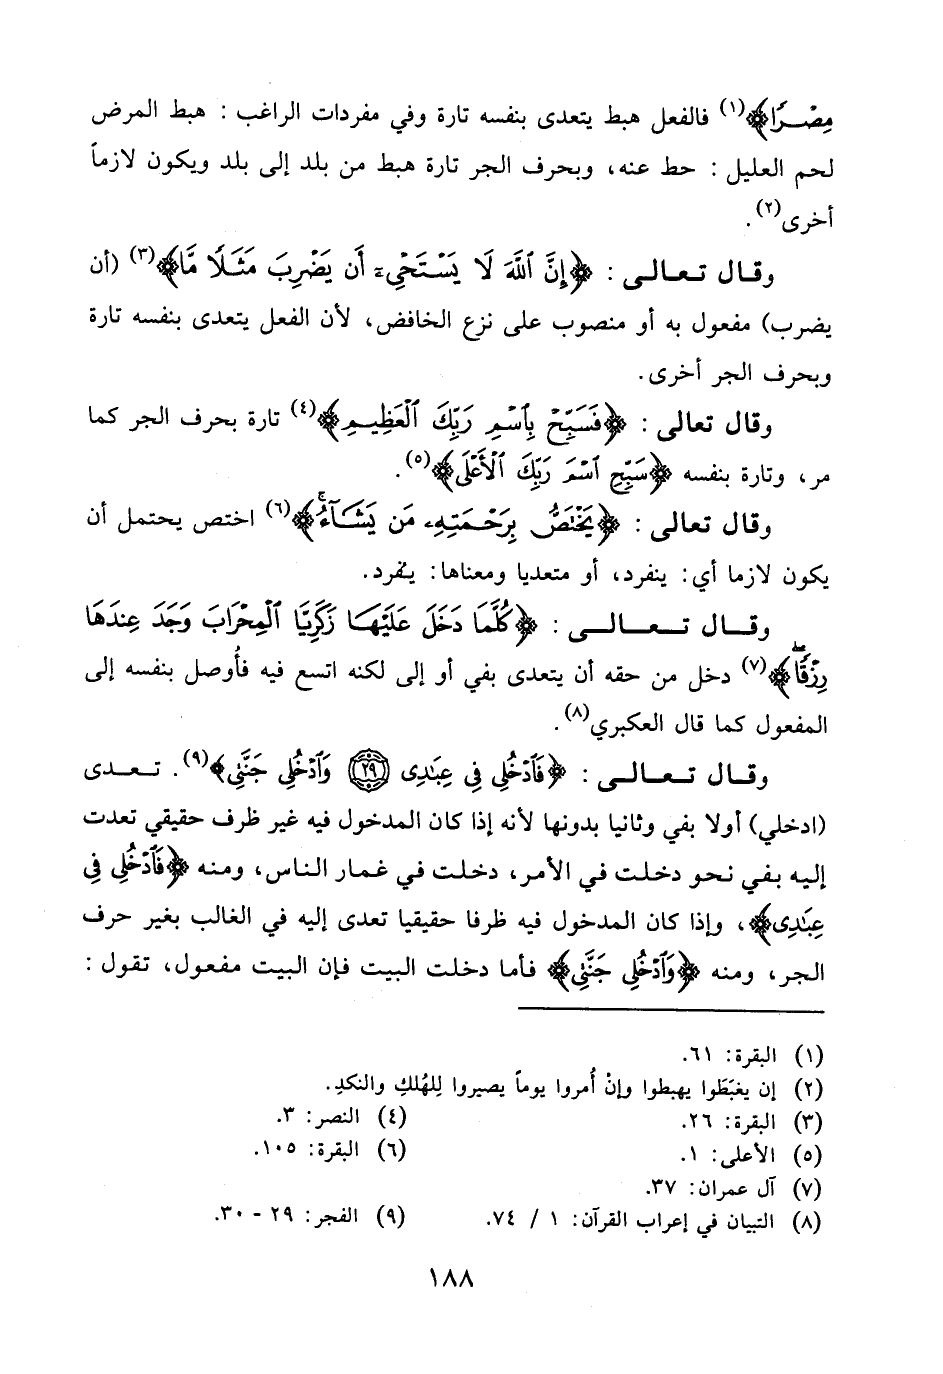 مِصْـرًا﴾(١) فالفعل هبط يتعدى بنفسه تارة وفي مفردات الراغب : هبط المرض
لحم العليل : حط عنه، وبحرف الجر تارة هبط من بلد إلى بلد ويكون لازماً
أخرى(٢).
وقـال تـعـالـى : ﴿إِنَّ ٱللَّهَ لَا يَسْتَحْيِۦٓ أَن يَضْرِبَ مَثَلًا مَّا﴾(٣) (أن
يضرب) مفعول به أو منصوب على نزع الخافض، لأن الفعل يتعدى بنفسه تارة
وبحرف الجر أخرى.
وقال تعالى : ﴿فَسَبِّحْ بِٱسْمِ رَبِّكَ ٱلْعَظِيـمِ﴾(٤) تارة بحرف الجر كما
مر، وتارة بنفسه ﴿سَبِّحِ ٱسْمَ رَبِّكَ ٱلْأَعْلَى﴾(٥).
وقال تعالى : ﴿يَخْتَصُّ بِرَحْـمَتِهِۦ مَن يَشَـآءُۗ﴾(٦) اختص يحتمل أن
يكون لازما أي: ينفرد، أو متعديا ومعناها: يـفرد.
وقـــال تــعــالــى : ﴿كُلَّمَا دَخَلَ عَلَيْهَـا زَكَرِيَّا ٱلْمِحْرَابَ وَجَدَ عِندَهَا
رِزْقًاۖ﴾(٧) دخل من حقه أن يتعدى بفي أو إلى لكنه اتسع فيه فأُوصل بنفسه إلى
المفعول كما قال العكبري(٨).
وقـال تـعـالـى : ﴿فَٱدْخُلِى فِى عِبَـٰدِى ٢٩ وَٱدْخُلِى جَنَّتِى﴾(٩). تـعـدى
(ادخلي) أولا بفي وثانيا بدونها لأنه إذا كان المدخول فيه غير ظرف حقيقي تعدت
إليه بـفي نحو دخلت في الأمر، دخلت في غمار الناس، ومنه ﴿فَٱدْخُلِى فِى
عِبَـٰدِى﴾، وإذا كان المدخول فيه ظرفا حقيقيا تعدى إليه في الغالب بغير حرف
الجر، ومنه ﴿وَٱدْخُلِى جَنَّتِى﴾ فأما دخلت البيت فإن البيت مفعول، تقول :
(١) البقرة: ٦١.
(٢) إن يغبَطَوا يهبطوا وإنْ أُمروا يوماً يصيروا لِلهُلكِ والنكدِ.
(٣) البقرة: ٢٦. (٤) النصر: ٣.
(٥) الأعلى: ١. (٦) البقرة: ١٠٥.
(٧) آل عمران: ٣٧.
(٨) التبيان في إعراب القرآن: ١ / ٧٤. (٩) الفجر: ٢٩ - ٣٠.
١٨٨